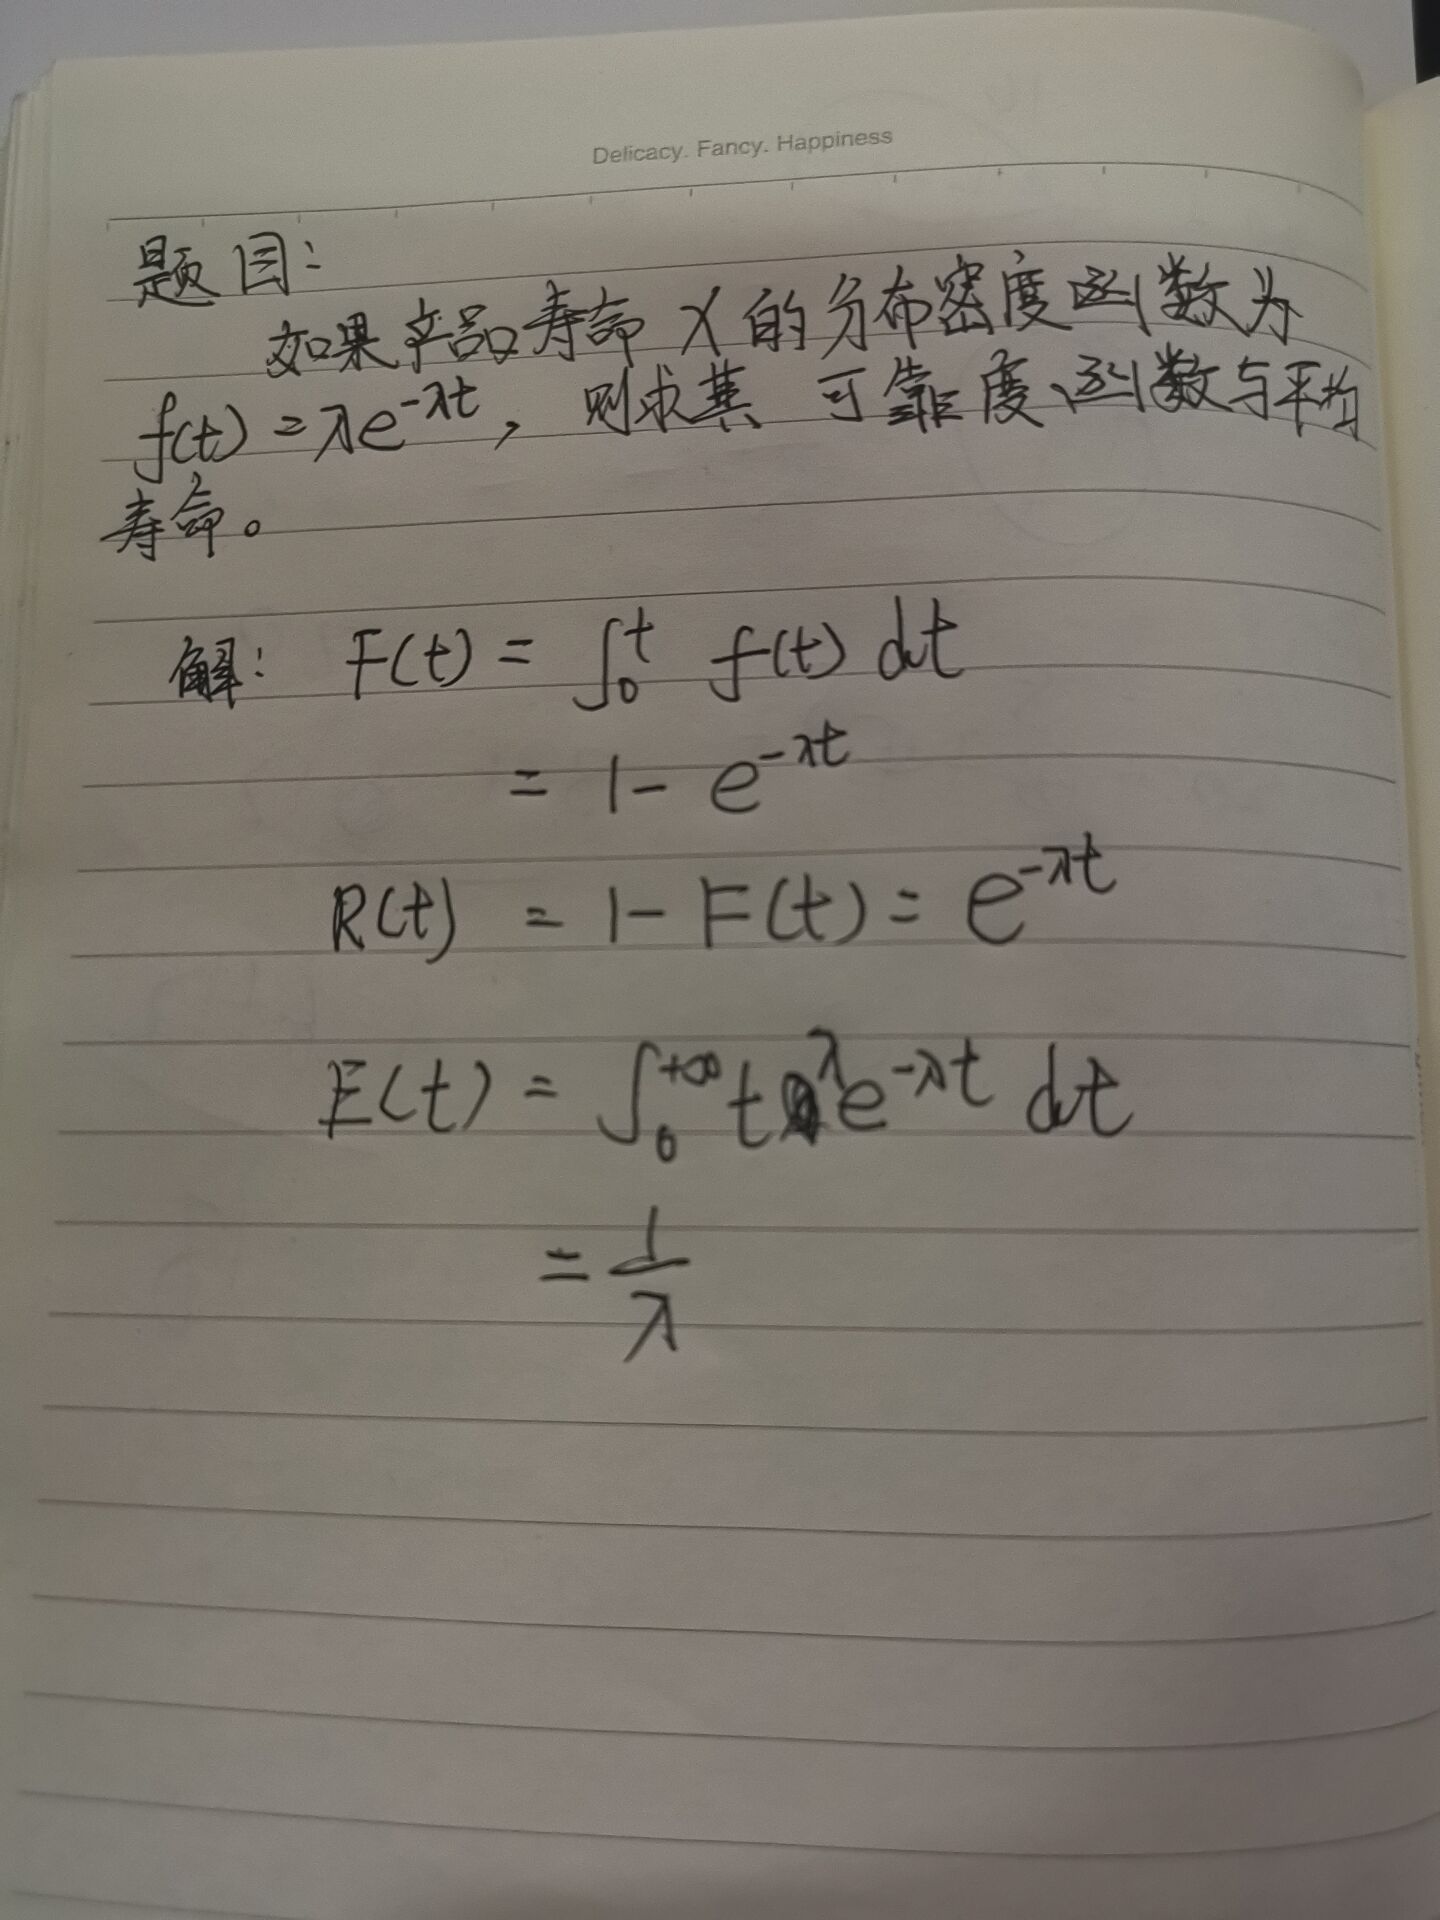 Delicacy. Fancy. Happiness
题目:
如果产品寿命 X 的分布密度函数为
f(t) = λe^{-λt}, 则求其 可靠度函数与平均
寿命。
解: F(t) = ∫_0^t f(t) dt
= 1 - e^{-λt}
R(t) = 1 - F(t) = e^{-λt}
E(t) = ∫_0^{+∞} t λe^{-λt} dt
= \frac{1}{λ}